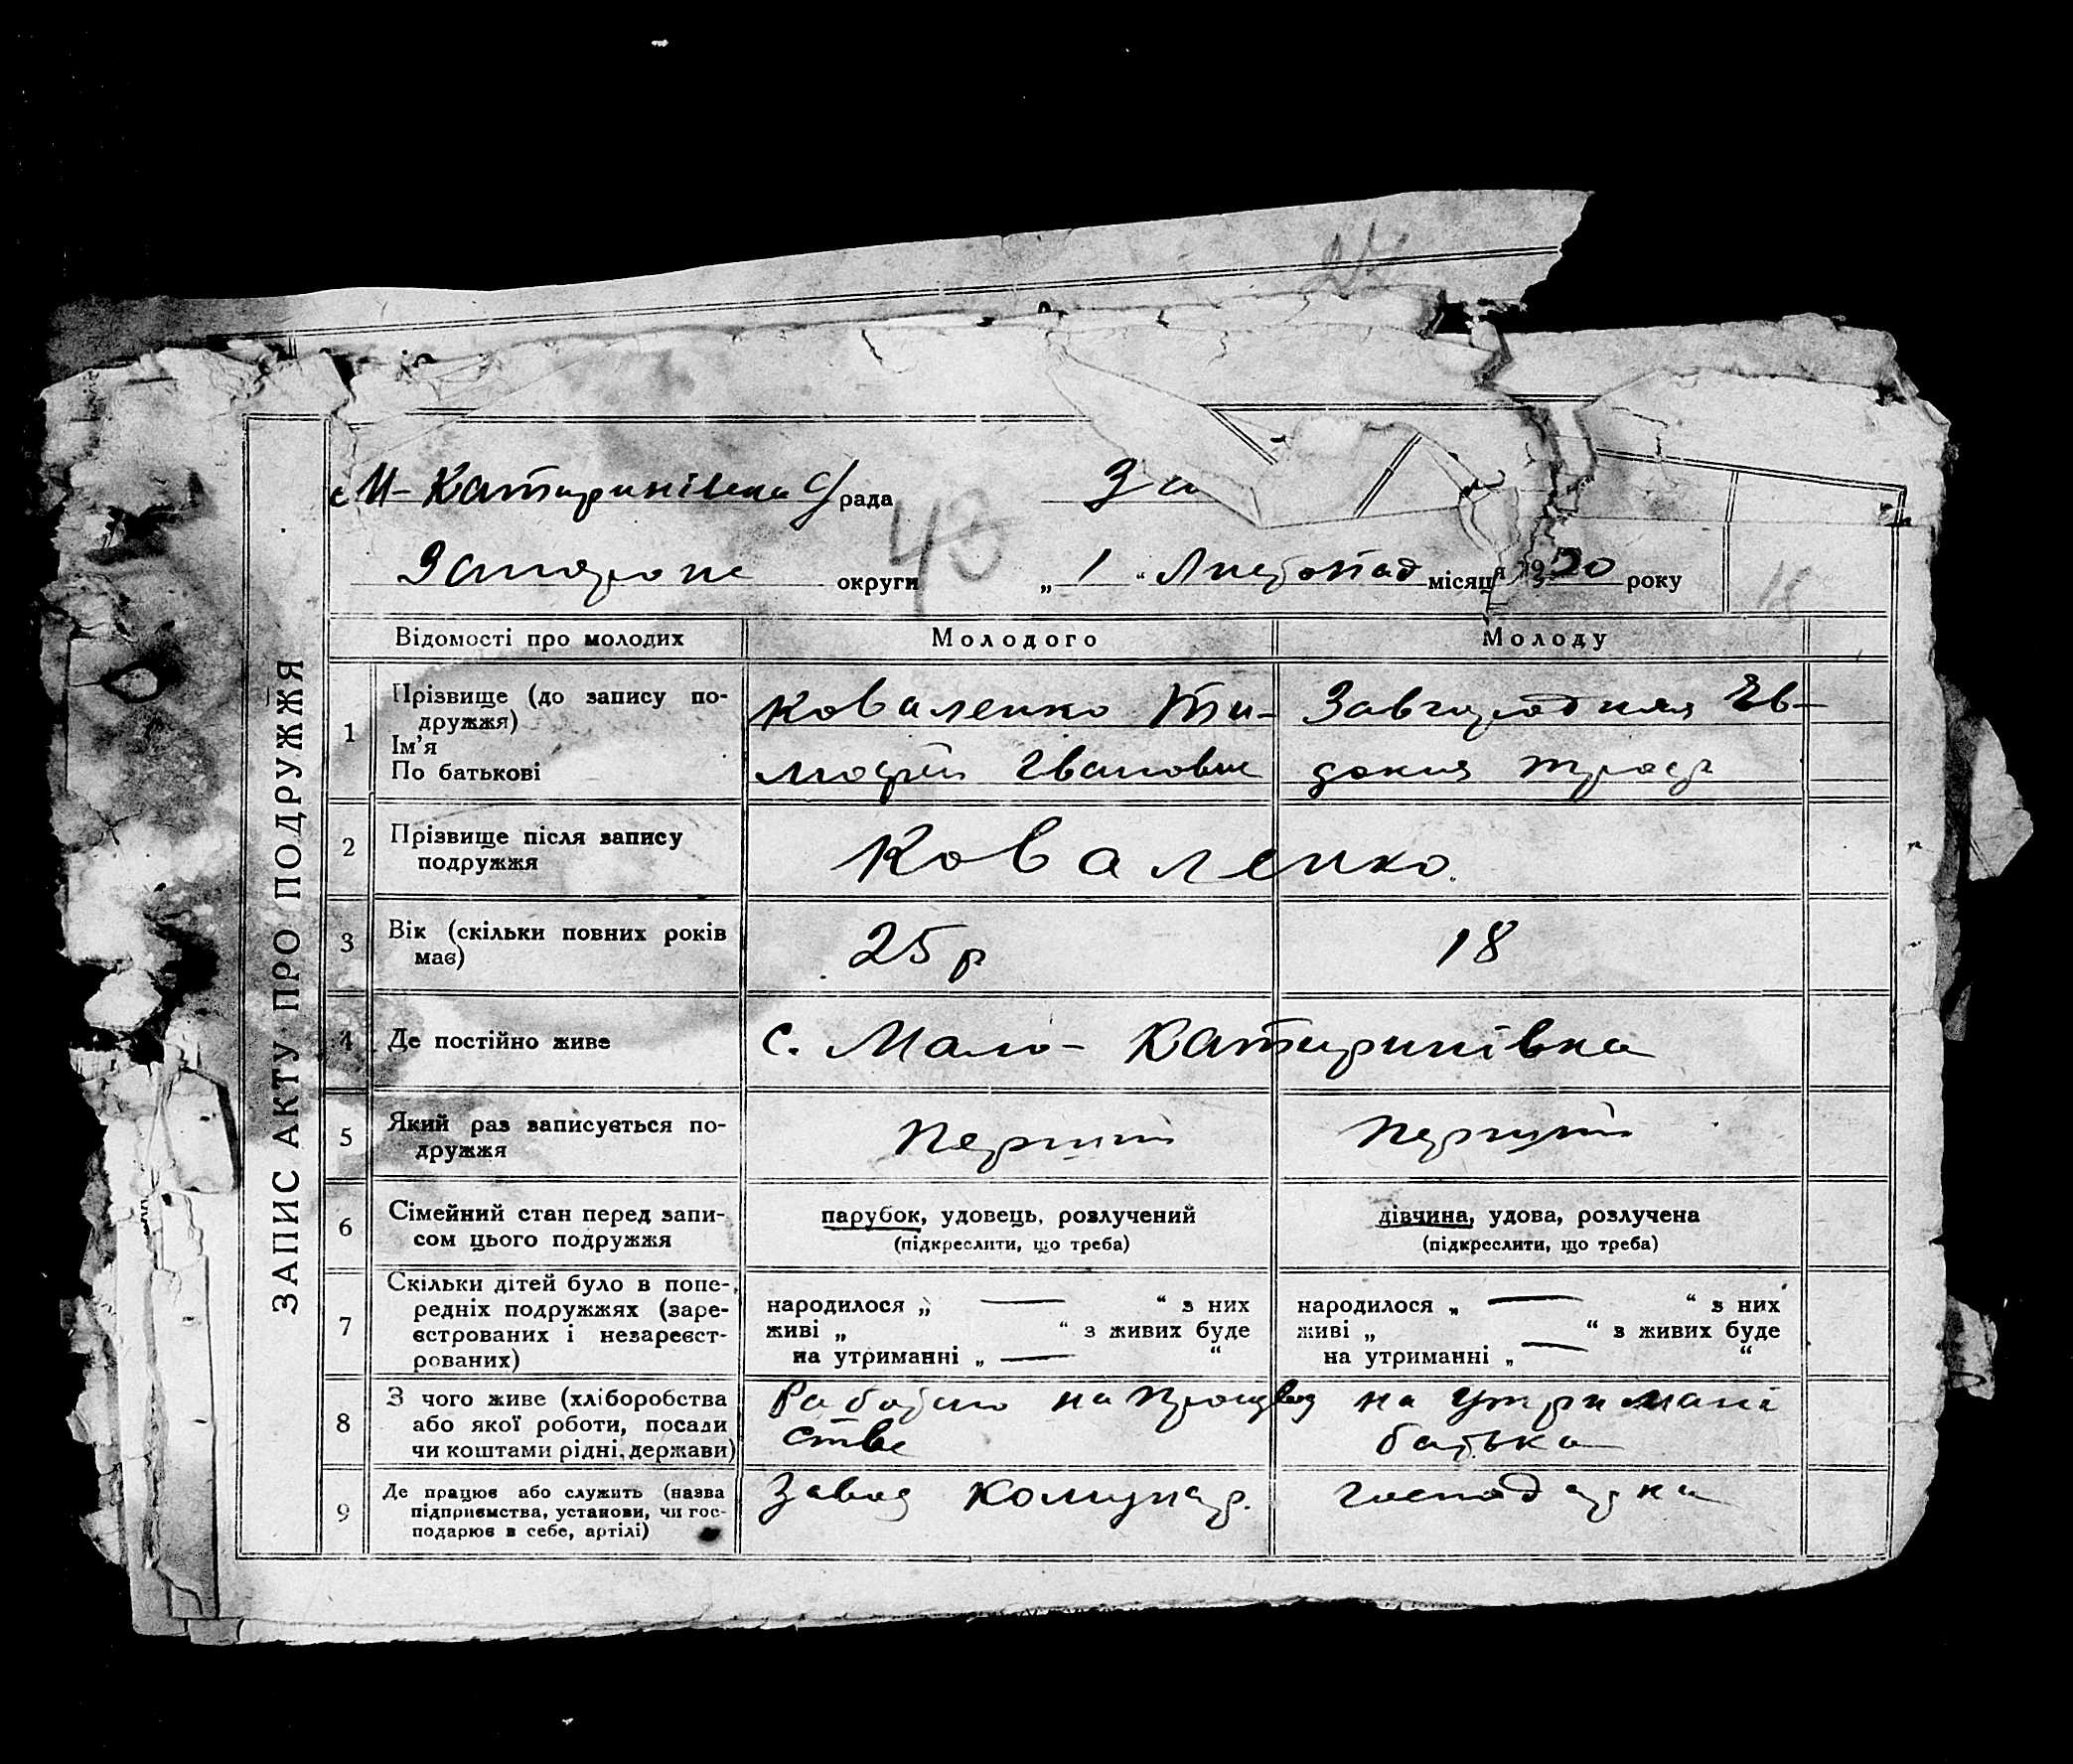 ЗАПИС АКТУ ПРО ПОДРУЖЖЯ
с М-Катиринівка С/рада За
43
Запорож округи „ 1 “ Листопад місяця 1930 року
18
Відомості про молодих Молодого Молоду
1 Прізвище (до запису по-
дружжя)
Ім’я
По батькові
Коваленко Ти-
мофій Іванович
Завгородняя Єв-
докия
2 Прізвище після запису
подружжя
Коваленко.
3 Вік (скільки повних років
має)
25 р 18
4 Де постійно живе с. Мало-Катиринівка
5 Який раз записується по-
дружжя
Перший Перший
6 Сімейний стан перед запи-
сом цього подружжя
парубок, удовець, розлучений
(підкреслити, що треба)
дівчина, удова, розлучена
(підкреслити, що треба)
7 Скільки дітей було в попе-
редніх подружжях (заре-
єстрованих і незареєст-
рованих)
народилося „ — “ з них
живі „ “ з живих буде
на утриманні „ — “
народилося „ — “ з них
живі „ “ з живих буде
на утриманні „ — “
8 З чого живе (хліборобства
або якої роботи, посади
чи коштами рідні, держави)
на
стве
на утримані
батька
9 Де працює або служить (назва
підприємства, установи, чи гос-
подарює в себе, артілі)
Завод Комунар. господарка